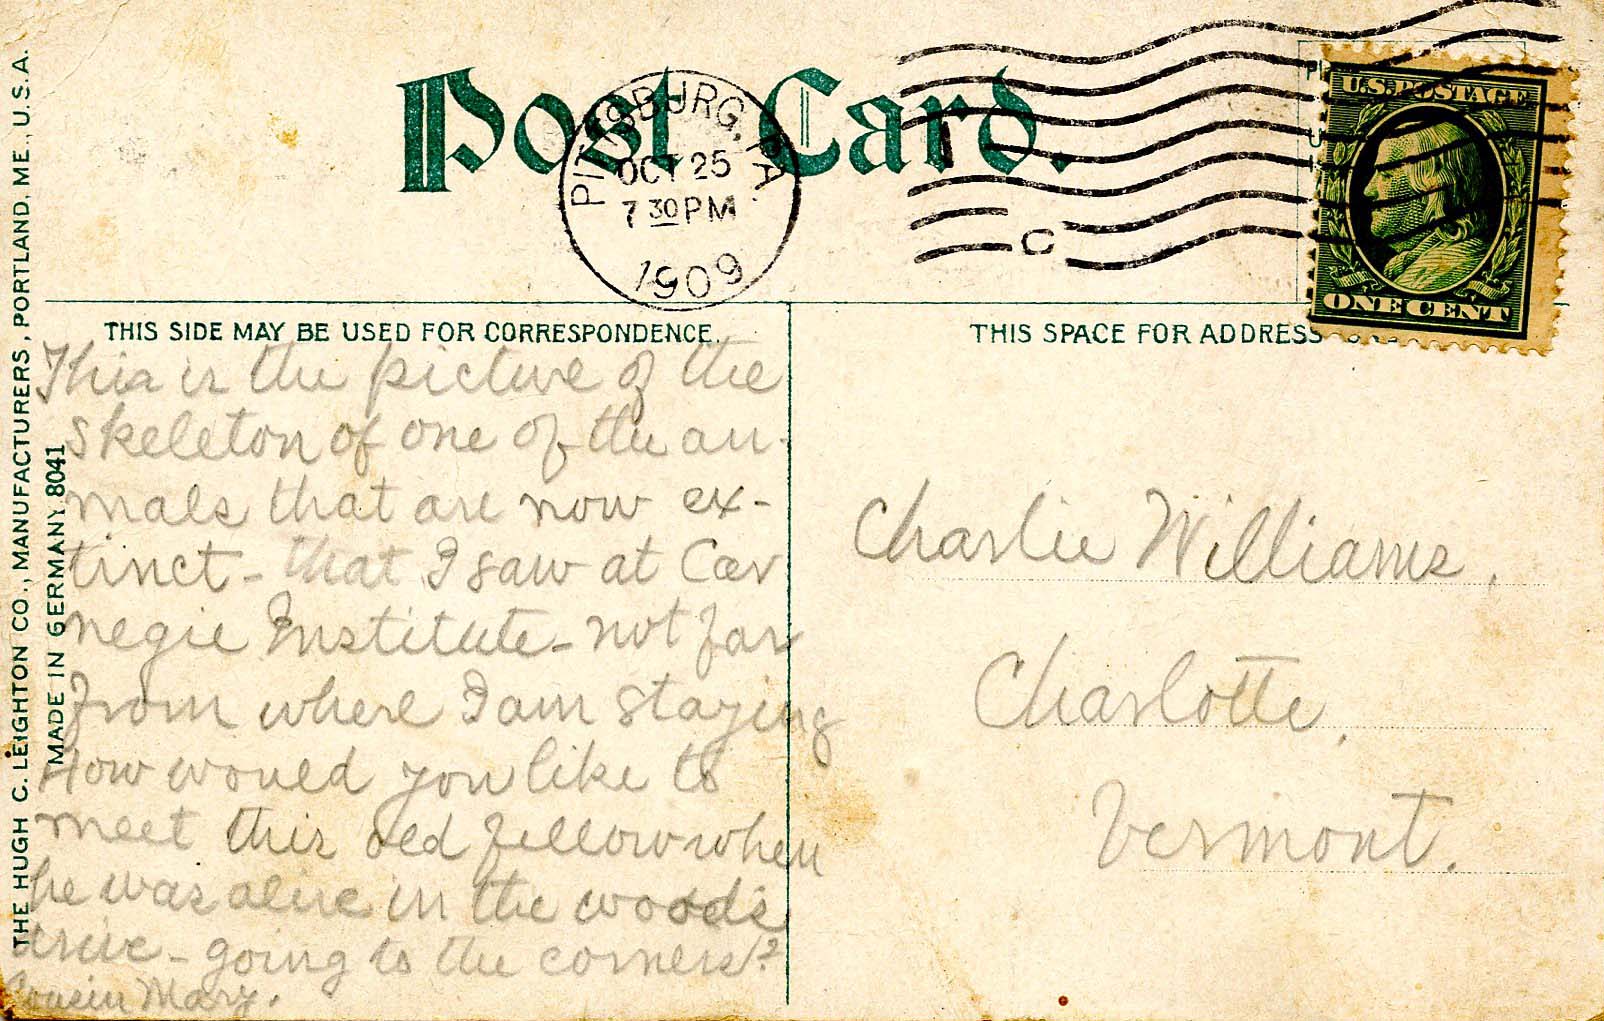 Post Card.
PITTSBURG, PA.
OCT 25
7 30 PM
1909
C
U.S. POSTAGE
ONE CENT
THE HUGH C. LEIGHTON CO., MANUFACTURERS, PORTLAND, ME., U.S.A.
MADE IN GERMANY 8041
THIS SIDE MAY BE USED FOR CORRESPONDENCE.
This is the picture of the
skeleton of one of the ani-
mals that are now ex-
tinct - that I saw at Car
negie Institute - not far
from where I am staying
How would you like to
meet this old fellow when
he was alive in the woods
drive - going to the corners?
Cousin Mary.
THIS SPACE FOR ADDRESS
Charlie Williams,
Charlotte,
Vermont.